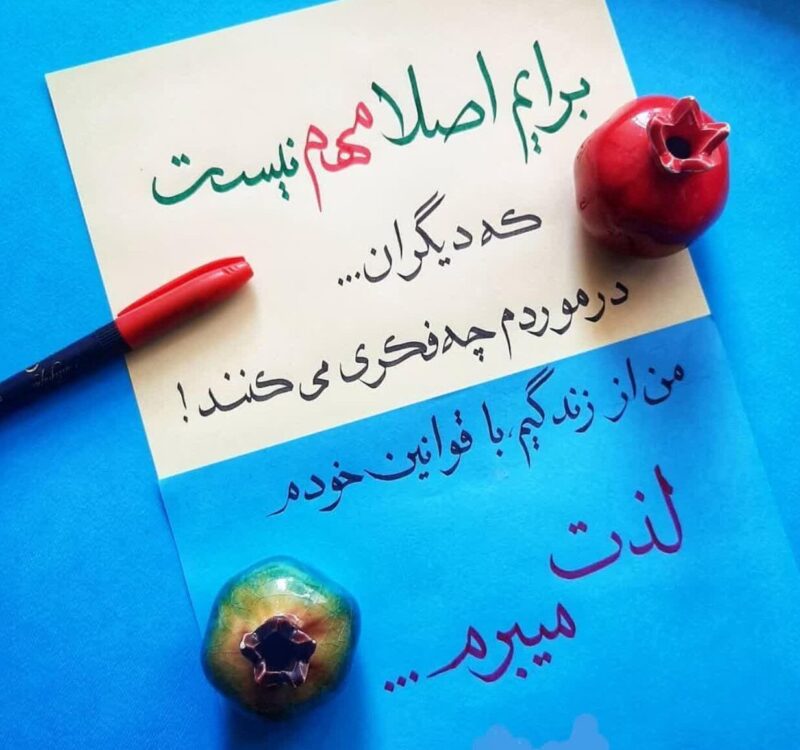 برایم اصلا مهم نیست
که دیگران...
درموردم چه فکری می کنند!
من از زندگیم، با قوانین خودم
لذت
میبرم...